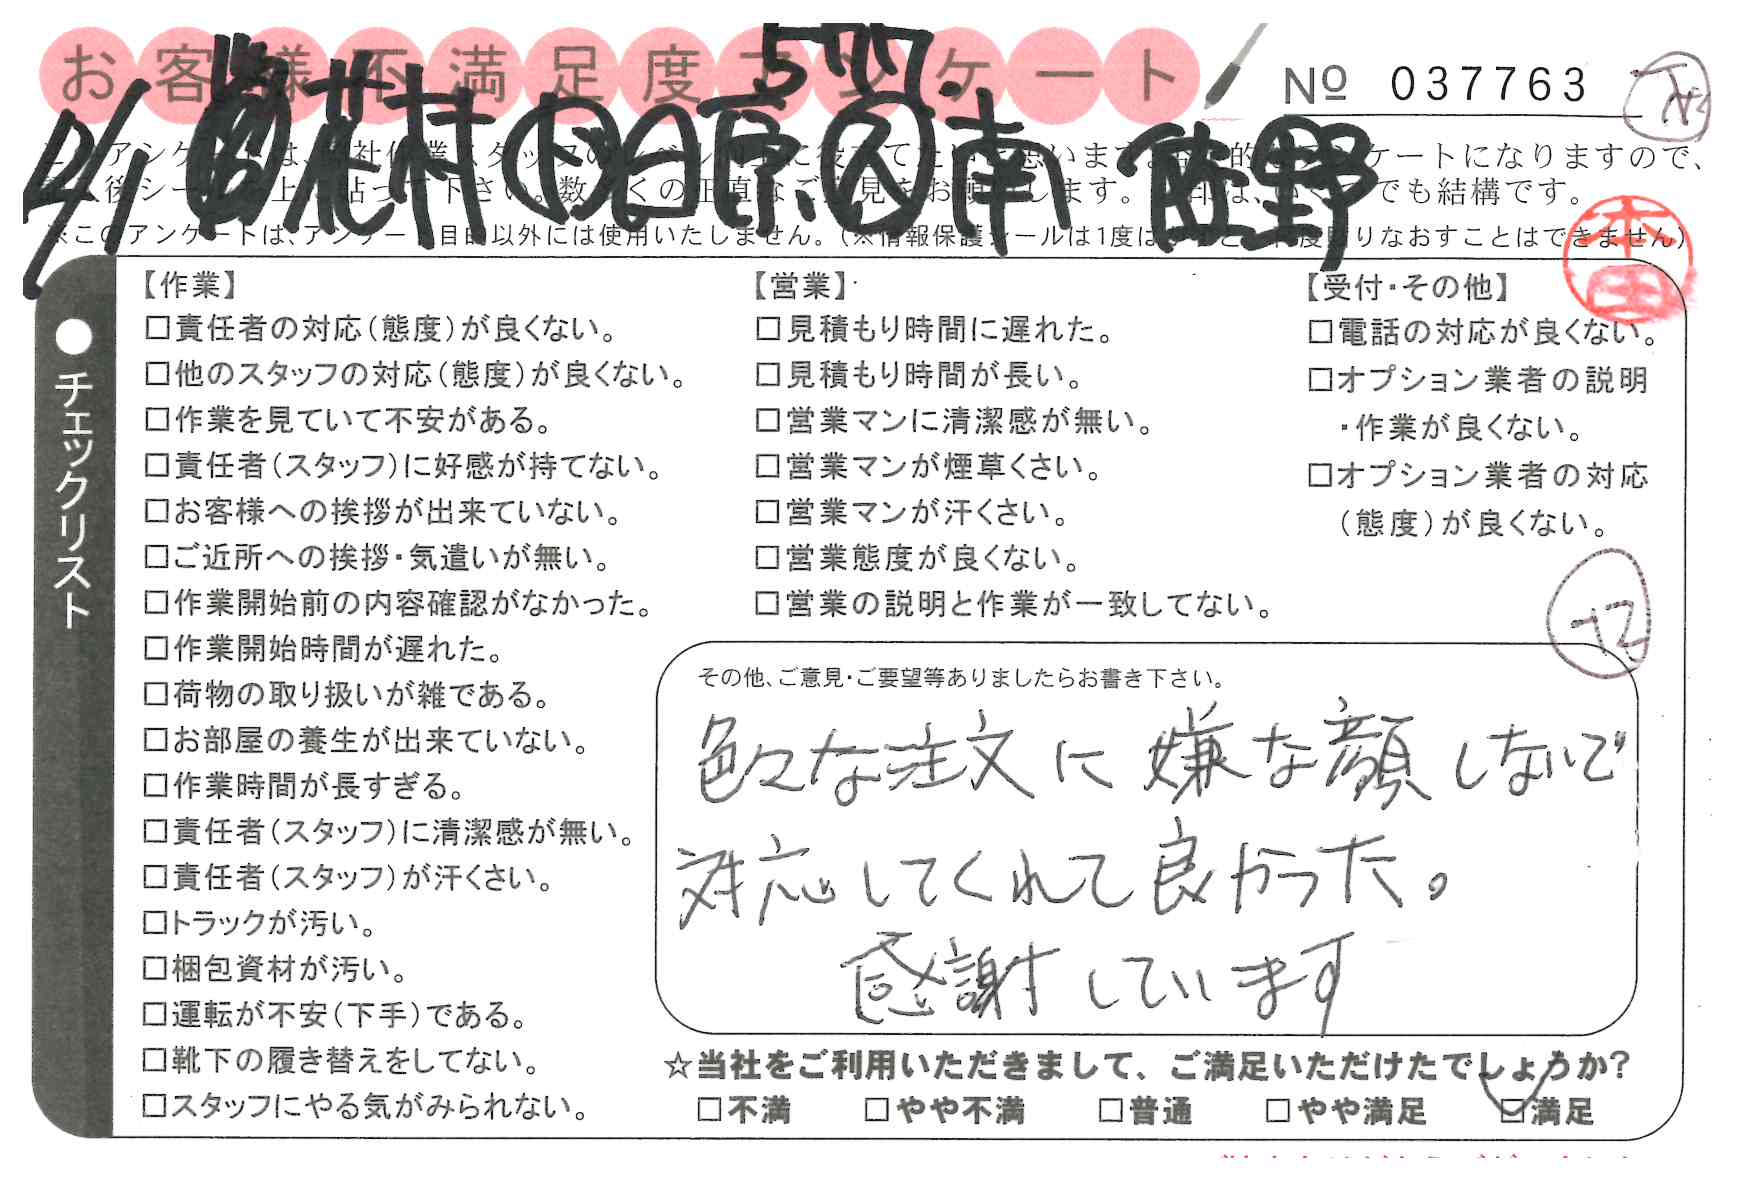 お客様不満足度アンケート
№ 037763
花村 原 南 佐野
※このアンケートは、アンケート目的以外には使用いたしません。(※情報保護シールは1度はがすと、再度貼りなおすことはできません)
本田
●チェックリスト
【作業】
□責任者の対応(態度)が良くない。
□他のスタッフの対応(態度)が良くない。
□作業を見ていて不安がある。
□責任者(スタッフ)に好感が持てない。
□お客様への挨拶が出来ていない。
□ご近所への挨拶・気遣いが無い。
□作業開始前の内容確認がなかった。
□作業開始時間が遅れた。
□荷物の取り扱いが雑である。
□お部屋の養生が出来ていない。
□作業時間が長すぎる。
□責任者(スタッフ)に清潔感が無い。
□責任者(スタッフ)が汗くさい。
□トラックが汚い。
□梱包資材が汚い。
□運転が不安(下手)である。
□靴下の履き替えをしてない。
□スタッフにやる気がみられない。
【営業】
□見積もり時間に遅れた。
□見積もり時間が長い。
□営業マンに清潔感が無い。
□営業マンが煙草くさい。
□営業マンが汗くさい。
□営業態度が良くない。
□営業の説明と作業が一致してない。
【受付・その他】
□電話の対応が良くない。
□オプション業者の説明
・作業が良くない。
□オプション業者の対応
(態度)が良くない。
その他、ご意見・ご要望等ありましたらお書き下さい。
色々な注文に嫌な顔しないで
対応してくれて良かった。
感謝しています
☆当社をご利用いただきまして、ご満足いただけたでしょうか?
□不満 □やや不満 □普通 □やや満足 ☑満足